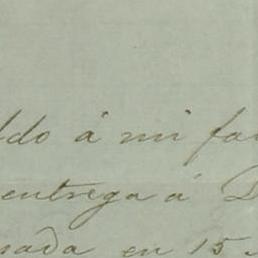 ldo á mi fa
entrega á D
nada en 15